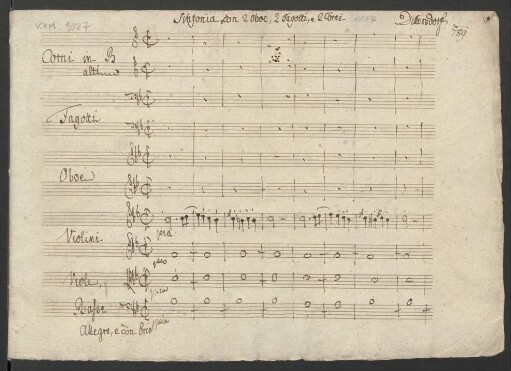 KHM. 9027
Sinfonia Con 2 Oboe, 2 Fagotti, e 2 Corni
Dittersdorf
789
Corni in B
altimo
Fagotti
Oboe
Violini
pia
pia
Viole,
pia
Basse
pia
Allegro, e con brio